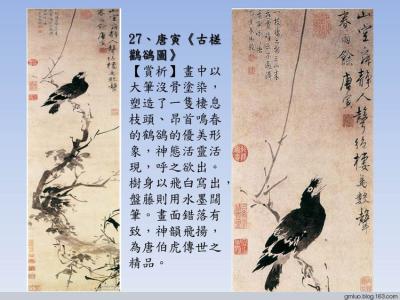 27、唐寅《古槎
鸜鵒圖》
【賞祈】畫中以
大筆沒骨塗染，
塑造了一隻棲息
枝頭、昂首鳴春
的鸜鵒的優美形
象，神態活靈活
現，呼之欲出。
樹身以飛白寫出，
盤藤則用水墨闊
筆。畫面錯落有
致，神韻飛揚，
為唐伯虎傳世之
精品。
山空寂靜人聲絕棲鳥數聲
春雨餘 唐寅
www.gmluo.blog.163.com